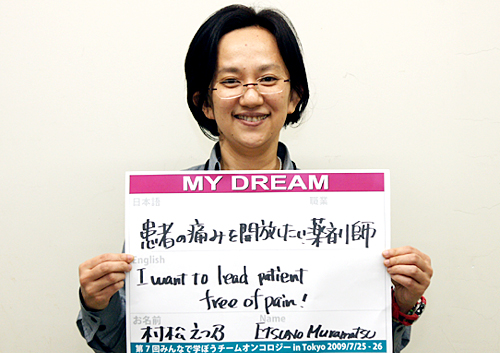 MY DREAM
日本語 職業
患者の痛みを開放したい薬剤師
English
I want to lead patient
free of pain!
お名前 Name
村松えつ乃 Etsuno Muramatsu
第7回みんなで学ぼうチームオンコロジー in Tokyo 2009/7/25 - 26